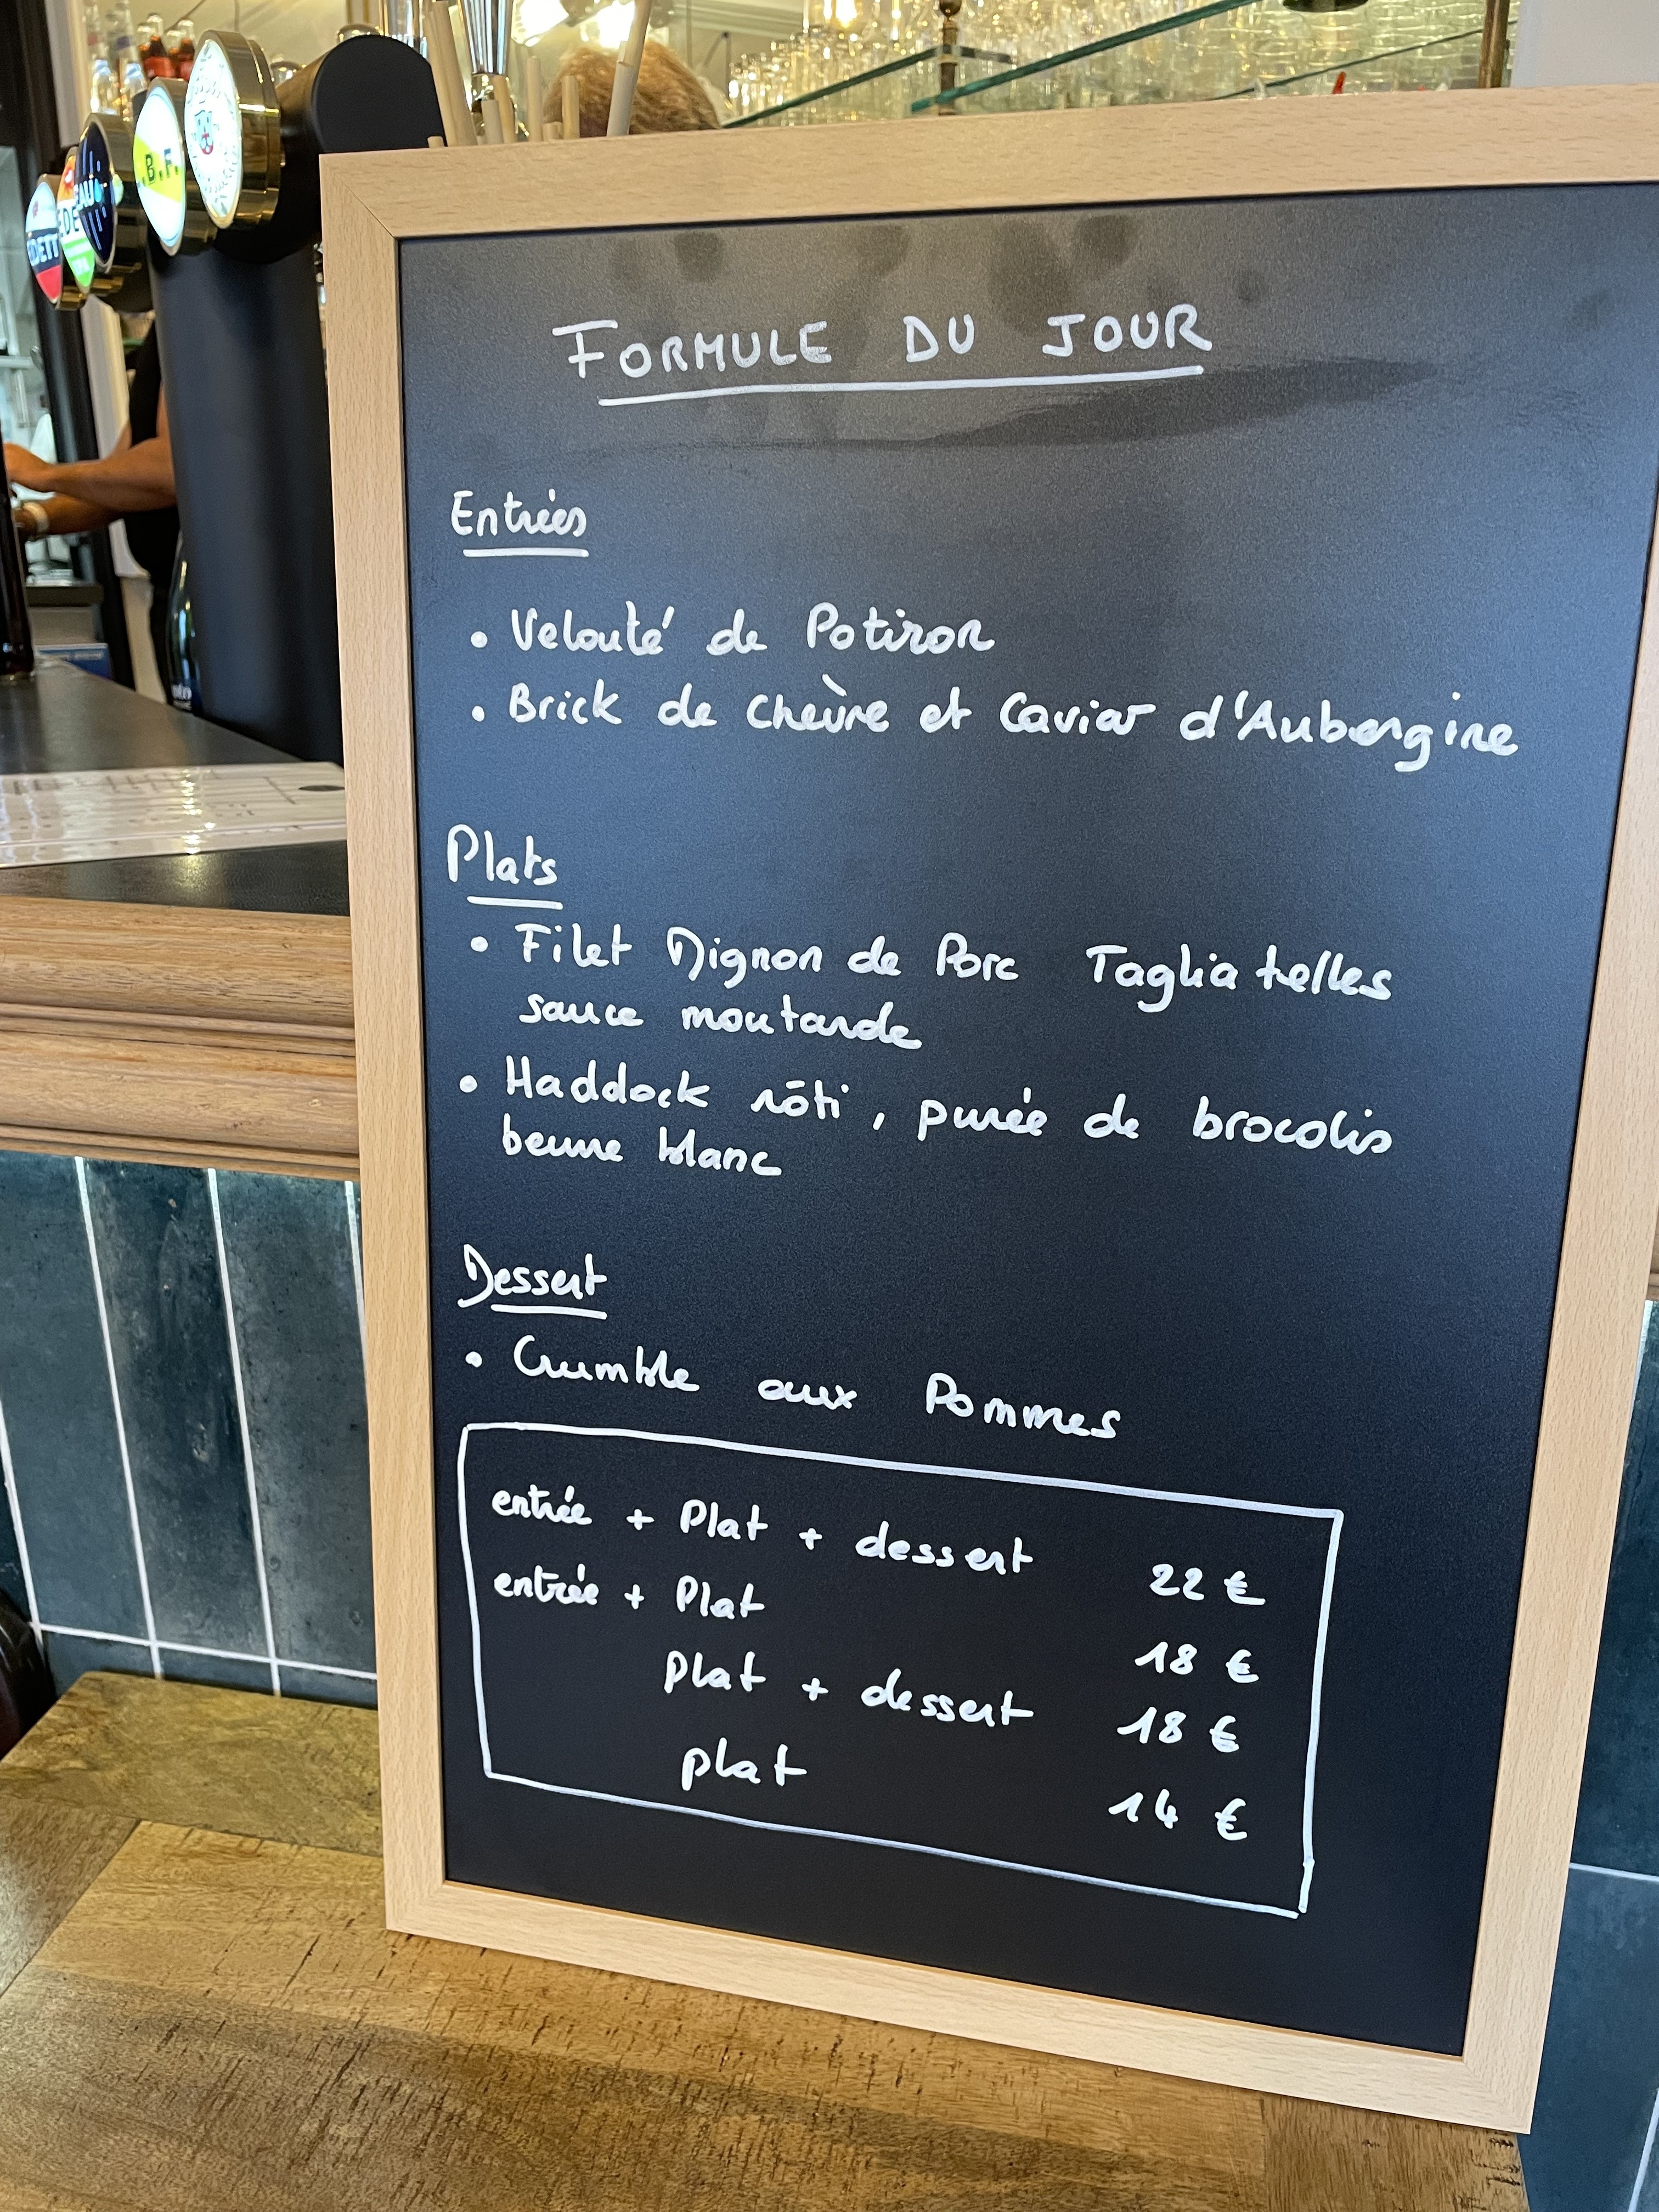 FORMULE DU JOUR
Entrées
• Velouté de Potiron
• Brick de chèvre et Caviar d'Aubergine
Plats
• Filet Mignon de Porc Tagliatelles
sauce moutarde
• Haddock rôti, purée de brocolis
beurre blanc
Dessert
• Crumble aux Pommes
entrée + Plat + dessert 22 €
entrée + Plat 18 €
plat + dessert 18 €
plat 14 €
B.F.